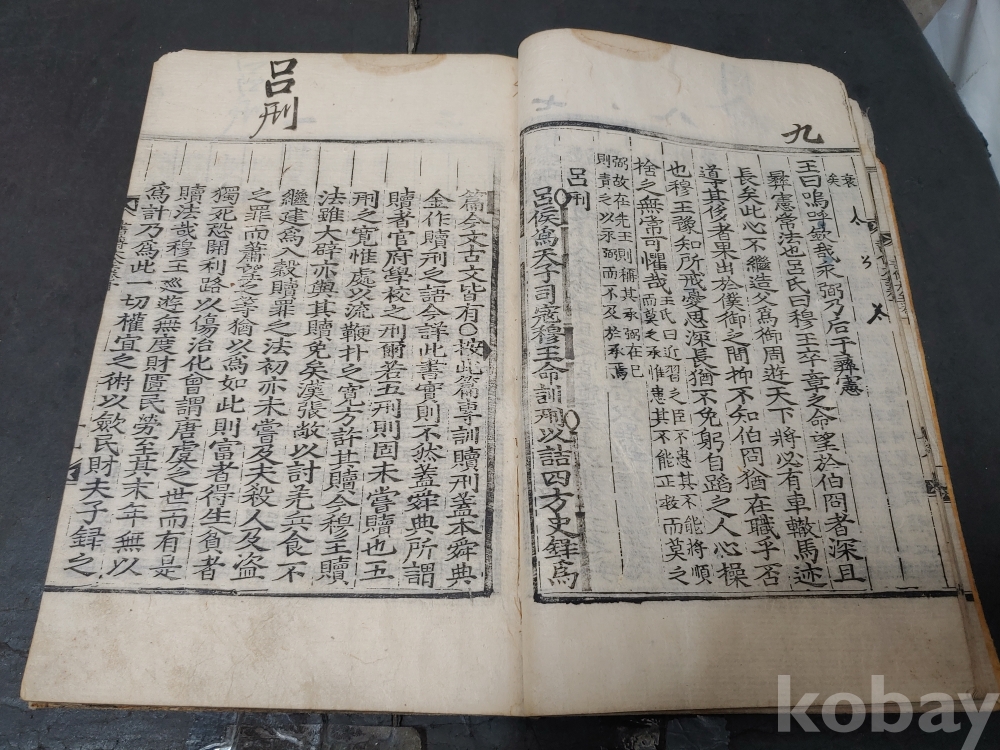 九
王曰嗚呼欽哉永弼乃后于彝憲
彝憲常法也呂氏曰穆王卒章之命望於伯冏者深且
長矣此心不繼造父為御周遊天下將必有車轍馬迹
導其侈者果出於僕御之間抑不知伯冏猶在職乎否
也穆王豫知所戒憂思深長猶不免躬自蹈之人心操
捨之無常可懼哉
王氏曰近習之臣不患其不能將順
而莫之承惟患其不能正救而莫之
弼故在先王則稱其承弼在已
則責之以永弼而不及於承焉
呂刑
呂侯為天子司寇穆王命訓刑以詰四方史錄為
呂刑
篇今文古文皆有〇按此篇專訓贖刑蓋本舜典
金作贖刑之語今詳此書實則不然蓋舜典所謂
贖者官府學校之刑爾若五刑則固未嘗贖也五
刑之寬惟處以流鞭扑之寬方許其贖今穆王贖
法雖大辟亦與其贖免矣漢張敞以討羌兵食不
繼建為入穀贖罪之法初亦未嘗及夫殺人及盜
之罪而蕭望之等猶以為如此則富者得生貧者
獨死恐開利路以傷治化曾謂唐虞之世而有是
贖法哉穆王巡遊無度財匱民勞至其末年無以
為計乃為此一切權宜之術以斂民財夫子錄之
kobay